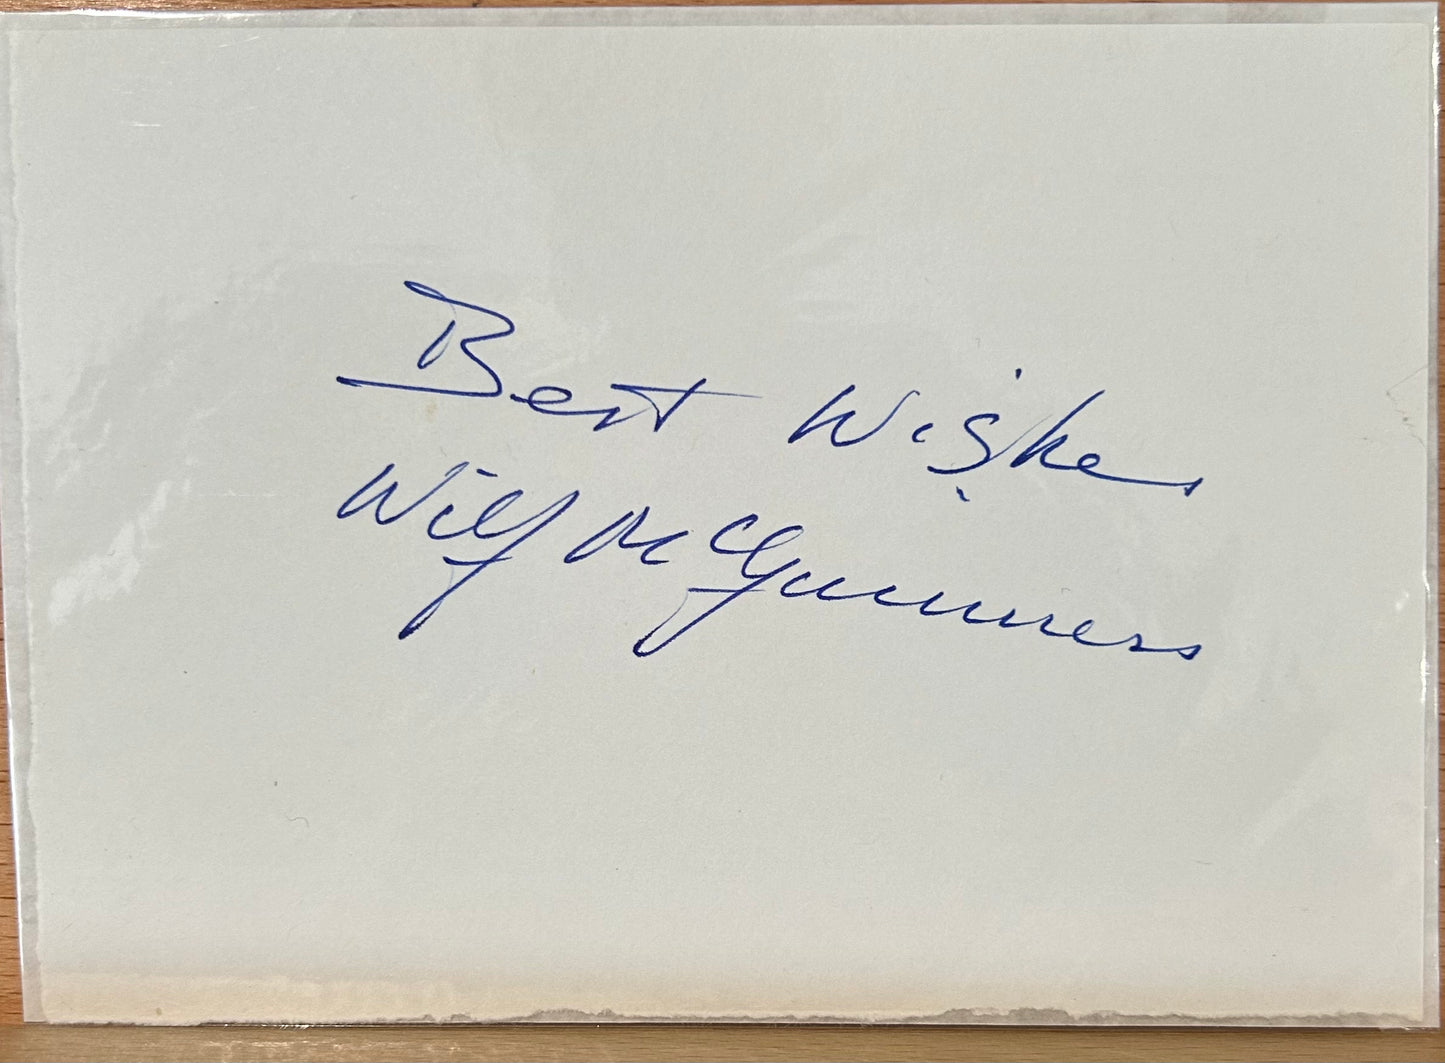 Best Wishes
Wilf McGuinness